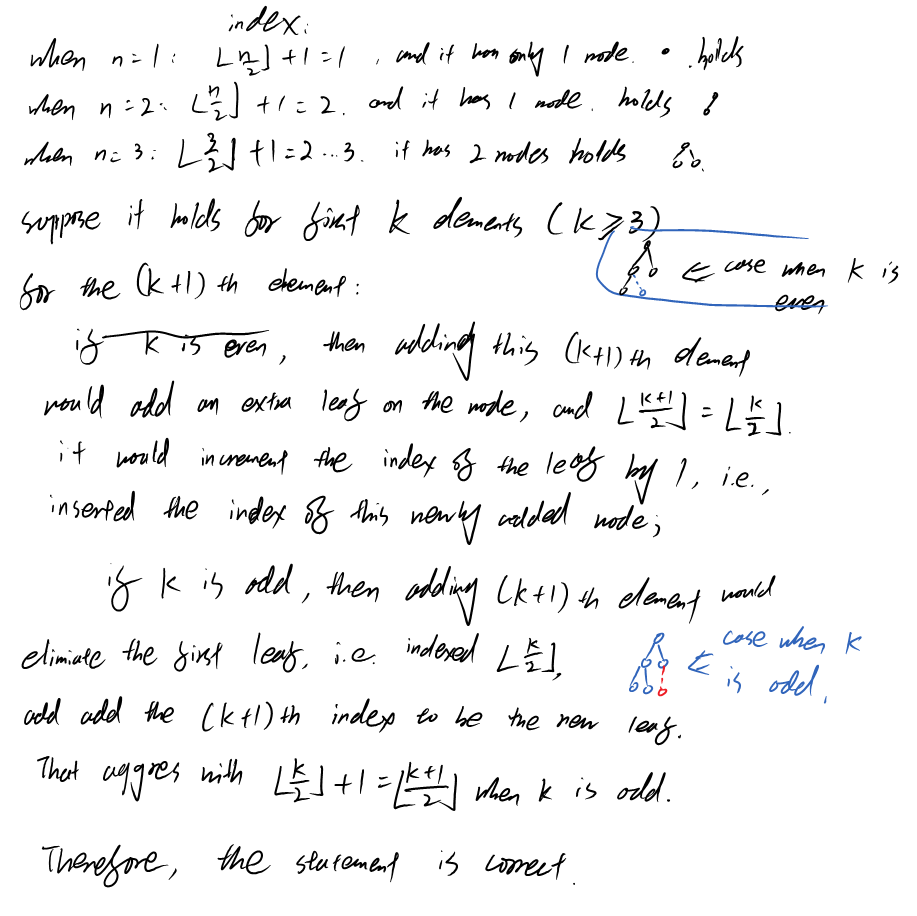 index:
when n=1: ⌊n/2⌋+1=1, and it has only 1 node. holds
when n=2: ⌊n/2⌋+1=2. and it has 1 node. holds
when n=3: ⌊3/2⌋+1=2...3. it has 2 nodes holds
suppose it holds for first k elements (k⩾3)
for the (k+1)th element:
⇐ case when k is
even
if k is even, then adding this (k+1)th element
would add an extra leaf on the node, and ⌊k+1/2⌋=⌊k/2⌋.
it would increment the index of the leaf by 1, i.e.,
inserted the index of this newly added node;
if k is odd, then adding (k+1)th element would
elimiate the first leaf, i.e. indexed ⌊k/2⌋,
⇐ case when k
is odd.
add add the (k+1)th index to be the new leaf.
That aggres with ⌊k/2⌋+1=⌊k+1/2⌋ when k is odd.
Therefore, the statement is correct.